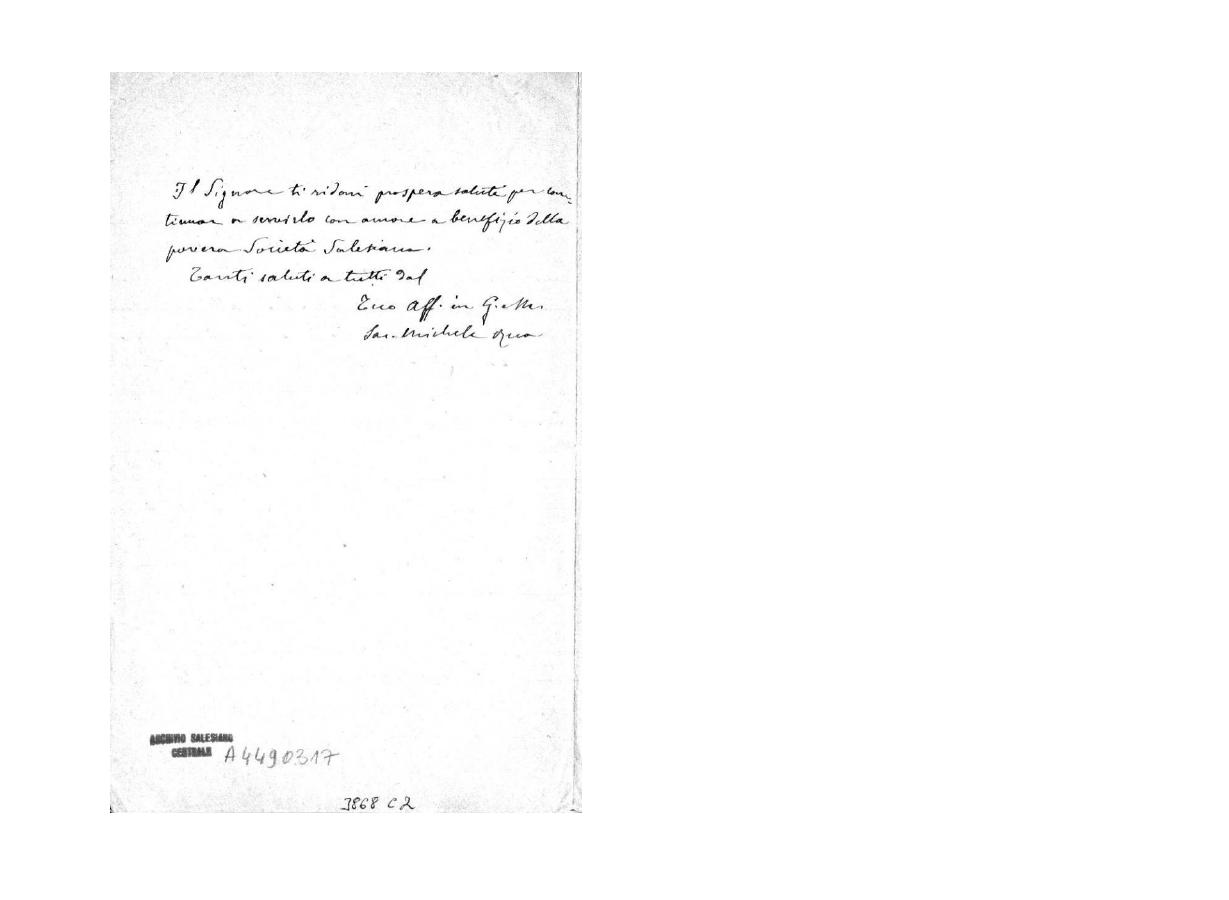 Il Signore ti ridoni prospera salute per con-
tinuar a servirlo con amore a benefizio della
povera Società Salesiana.
Tanti saluti a tutti dal
Tuo Aff. in G. e M.
Sac. Michele Rua
ARCHIVIO SALESIANO
CENTRALE
A4490317
3868 C2